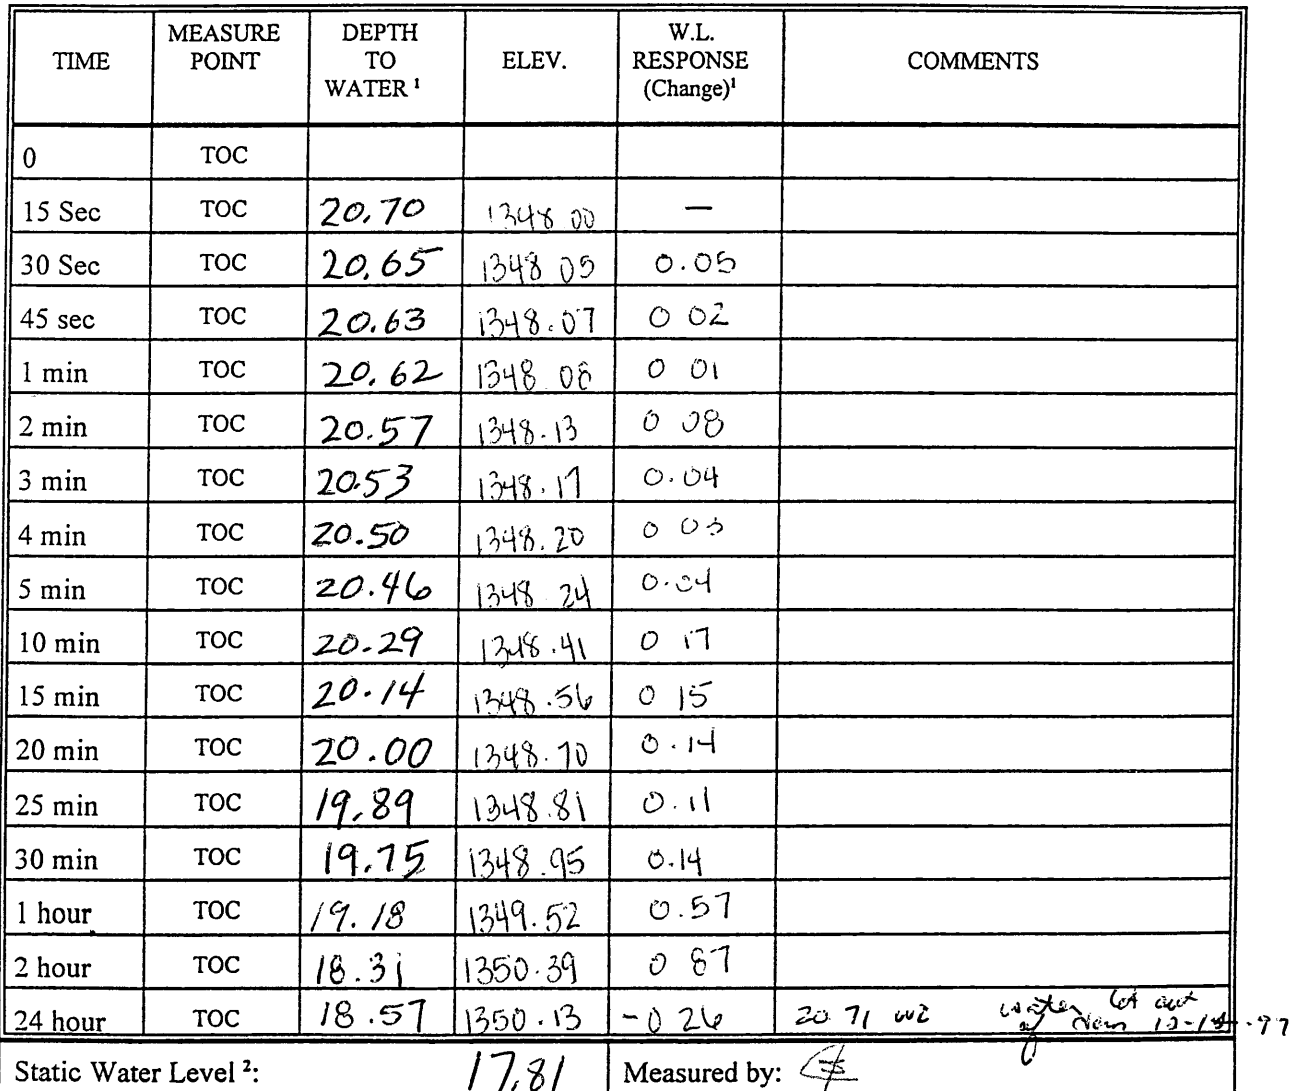 TIME MEASURE POINT DEPTH TO WATER ¹ ELEV. W.L. RESPONSE (Change)¹ COMMENTS
0 TOC
15 Sec TOC 20.70 1348 00 —
30 Sec TOC 20.65 1348 05 0.05
45 sec TOC 20.63 1348.07 0 02
1 min TOC 20.62 1348 08 0 01
2 min TOC 20.57 1348.13 0 08
3 min TOC 20.53 1348.17 0.04
4 min TOC 20.50 1348.20 0 03
5 min TOC 20.46 1348 24 0.04
10 min TOC 20.29 1348.41 0 17
15 min TOC 20.14 1348.56 0 15
20 min TOC 20.00 1348.70 0.14
25 min TOC 19.89 1348.81 0.11
30 min TOC 19.75 1348.95 0.14
1 hour TOC 19.18 1349.52 0.57
2 hour TOC 18.31 1350.39 0 87
24 hour TOC 18.57 1350.13 -0 26 20 71 water let out of
Static Water Level ²: 17.81 Measured by: